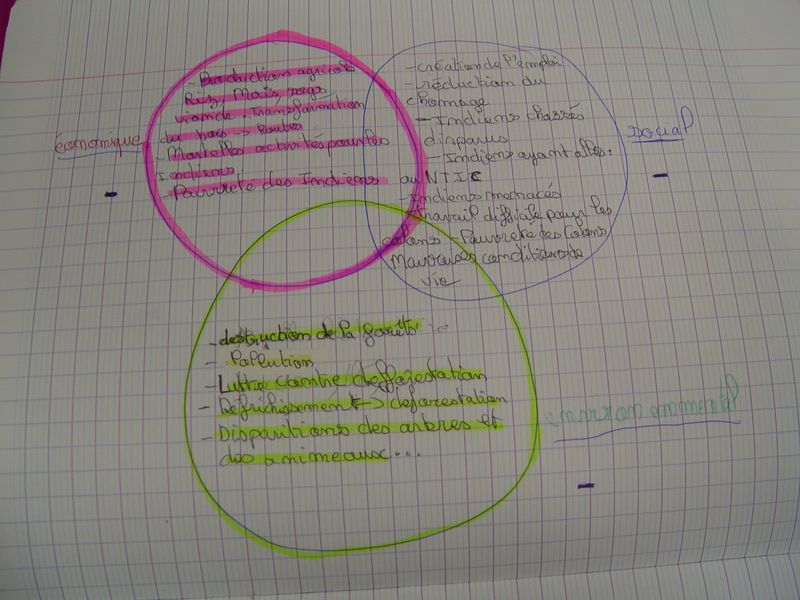 économique
- Production agricole
Riz, Maïs, soja
viande - Transformation
du bois -> Routes
- Mortelles activités pour les
Indiens
- Pauvreté des Indiens
- création de l'emploi
- réduction du
chomage
- Indiens chassés
disparus
- Indiens ayant accès
au NTIC
- Indiens menacés
travail difficile pour les
colons - Pauvreté des Colons
Mauvaises conditions de
vie
social
-
-
- destruction de la forêts
- Pollution
- Lutte contre defforestation
- Défrichissement -> déforestation
- Disparitions des arbres et
des animeaux...
environnemental
-